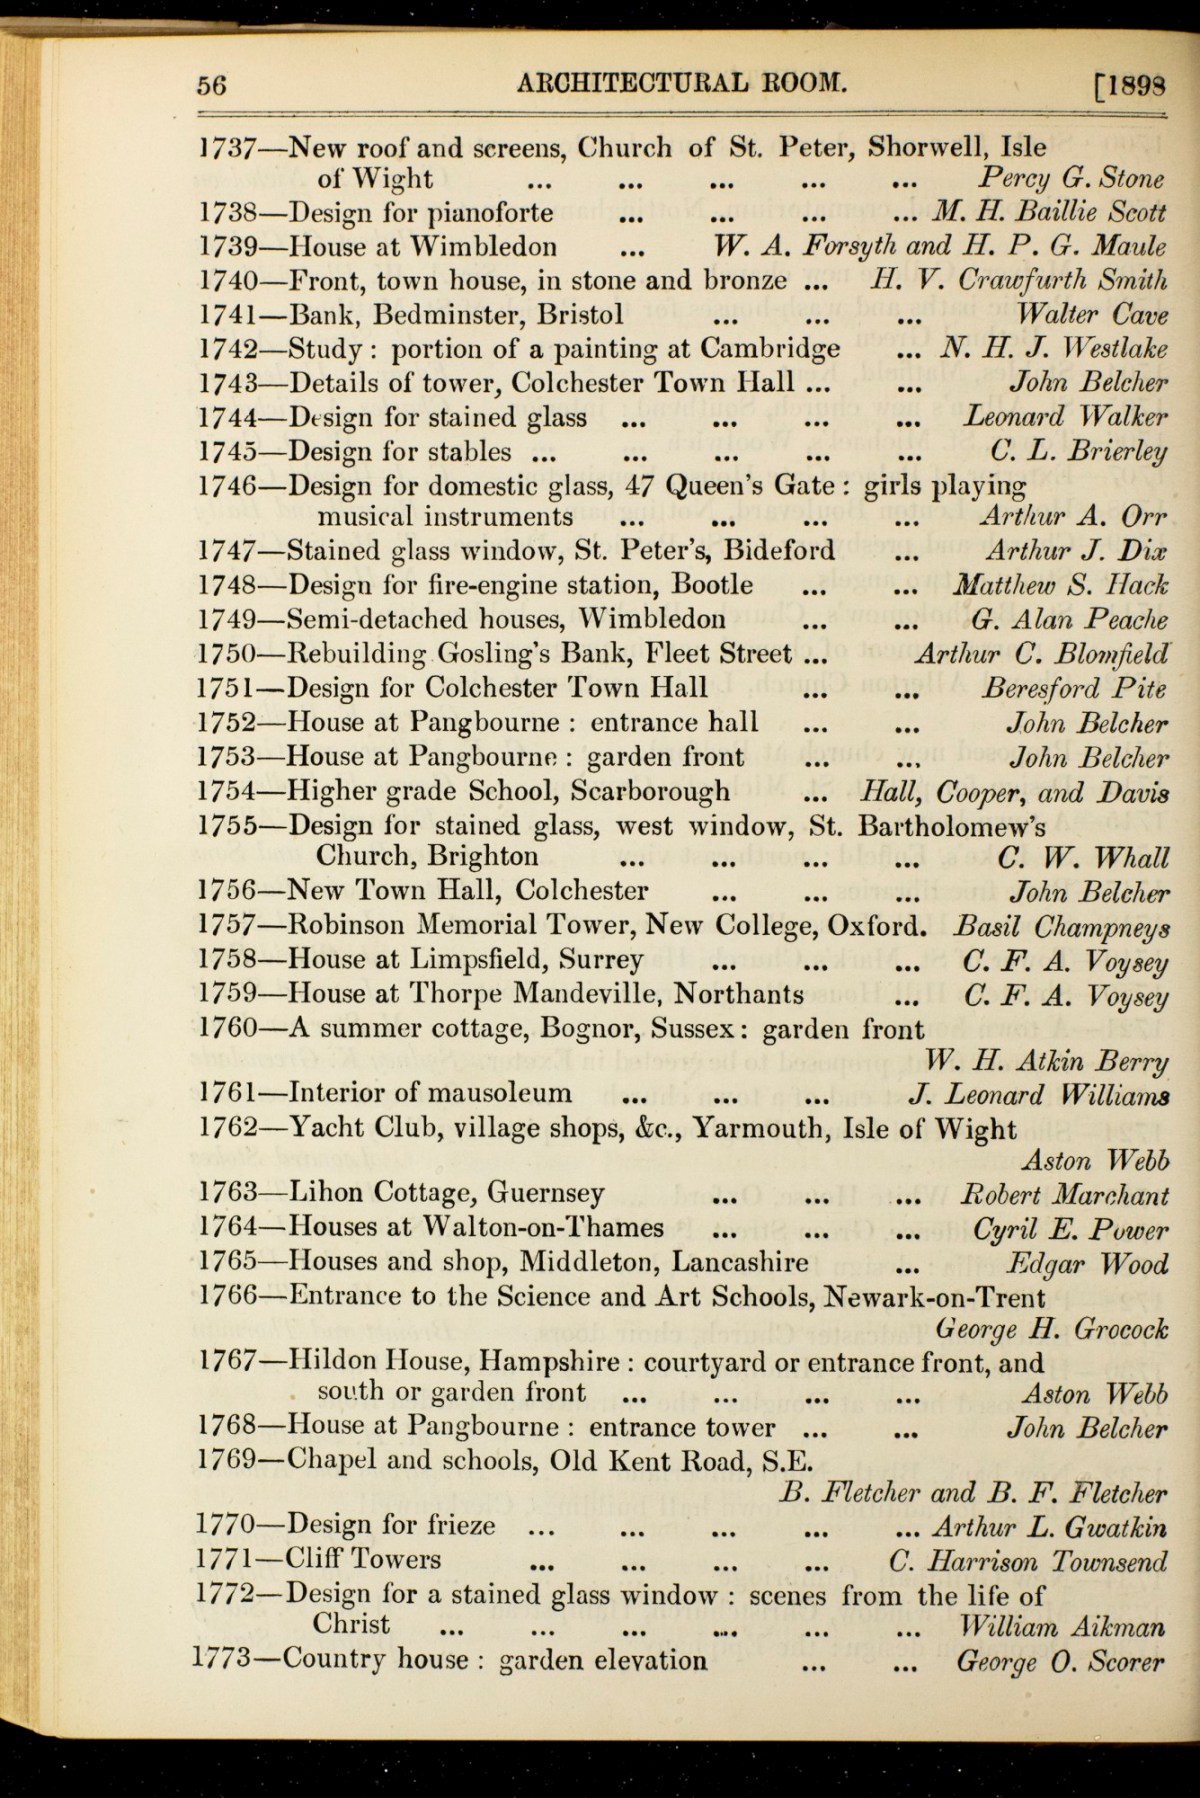 56 ARCHITECTURAL ROOM. [1898
1737—New roof and screens, Church of St. Peter, Shorwell, Isle
of Wight ... ... ... ... ... Percy G. Stone
1738—Design for pianoforte ... ... ... ... M. H. Baillie Scott
1739—House at Wimbledon ... W. A. Forsyth and H. P. G. Maule
1740—Front, town house, in stone and bronze ... H. V. Crawfurth Smith
1741—Bank, Bedminster, Bristol ... ... ... Walter Cave
1742—Study : portion of a painting at Cambridge ... N. H. J. Westlake
1743—Details of tower, Colchester Town Hall ... ... John Belcher
1744—Design for stained glass ... ... ... ... Leonard Walker
1745—Design for stables ... ... ... ... ... C. L. Brierley
1746—Design for domestic glass, 47 Queen's Gate : girls playing
musical instruments ... ... ... ... Arthur A. Orr
1747—Stained glass window, St. Peter's, Bideford ... Arthur J. Dix
1748—Design for fire-engine station, Bootle ... ... Matthew S. Hack
1749—Semi-detached houses, Wimbledon ... ... G. Alan Peache
1750—Rebuilding Gosling's Bank, Fleet Street ... Arthur C. Blomfield
1751—Design for Colchester Town Hall ... ... Beresford Pite
1752—House at Pangbourne : entrance hall ... ... John Belcher
1753—House at Pangbourne : garden front ... ... John Belcher
1754—Higher grade School, Scarborough ... Hall, Cooper, and Davis
1755—Design for stained glass, west window, St. Bartholomew's
Church, Brighton ... ... ... ... C. W. Whall
1756—New Town Hall, Colchester ... ... ... John Belcher
1757—Robinson Memorial Tower, New College, Oxford. Basil Champneys
1758—House at Limpsfield, Surrey ... ... ... C. F. A. Voysey
1759—House at Thorpe Mandeville, Northants ... C. F. A. Voysey
1760—A summer cottage, Bognor, Sussex : garden front
W. H. Atkin Berry
1761—Interior of mausoleum ... ... ... J. Leonard Williams
1762—Yacht Club, village shops, &c., Yarmouth, Isle of Wight
Aston Webb
1763—Lihon Cottage, Guernsey ... ... ... Robert Marchant
1764—Houses at Walton-on-Thames ... ... ... Cyril E. Power
1765—Houses and shop, Middleton, Lancashire ... Edgar Wood
1766—Entrance to the Science and Art Schools, Newark-on-Trent
George H. Grocock
1767—Hildon House, Hampshire : courtyard or entrance front, and
south or garden front ... ... ... ... Aston Webb
1768—House at Pangbourne : entrance tower ... ... John Belcher
1769—Chapel and schools, Old Kent Road, S.E.
B. Fletcher and B. F. Fletcher
1770—Design for frieze ... ... ... ... ... Arthur L. Gwatkin
1771—Cliff Towers ... ... ... ... C. Harrison Townsend
1772—Design for a stained glass window : scenes from the life of
Christ ... ... ... ... ... ... William Aikman
1773—Country house : garden elevation ... ... George O. Scorer